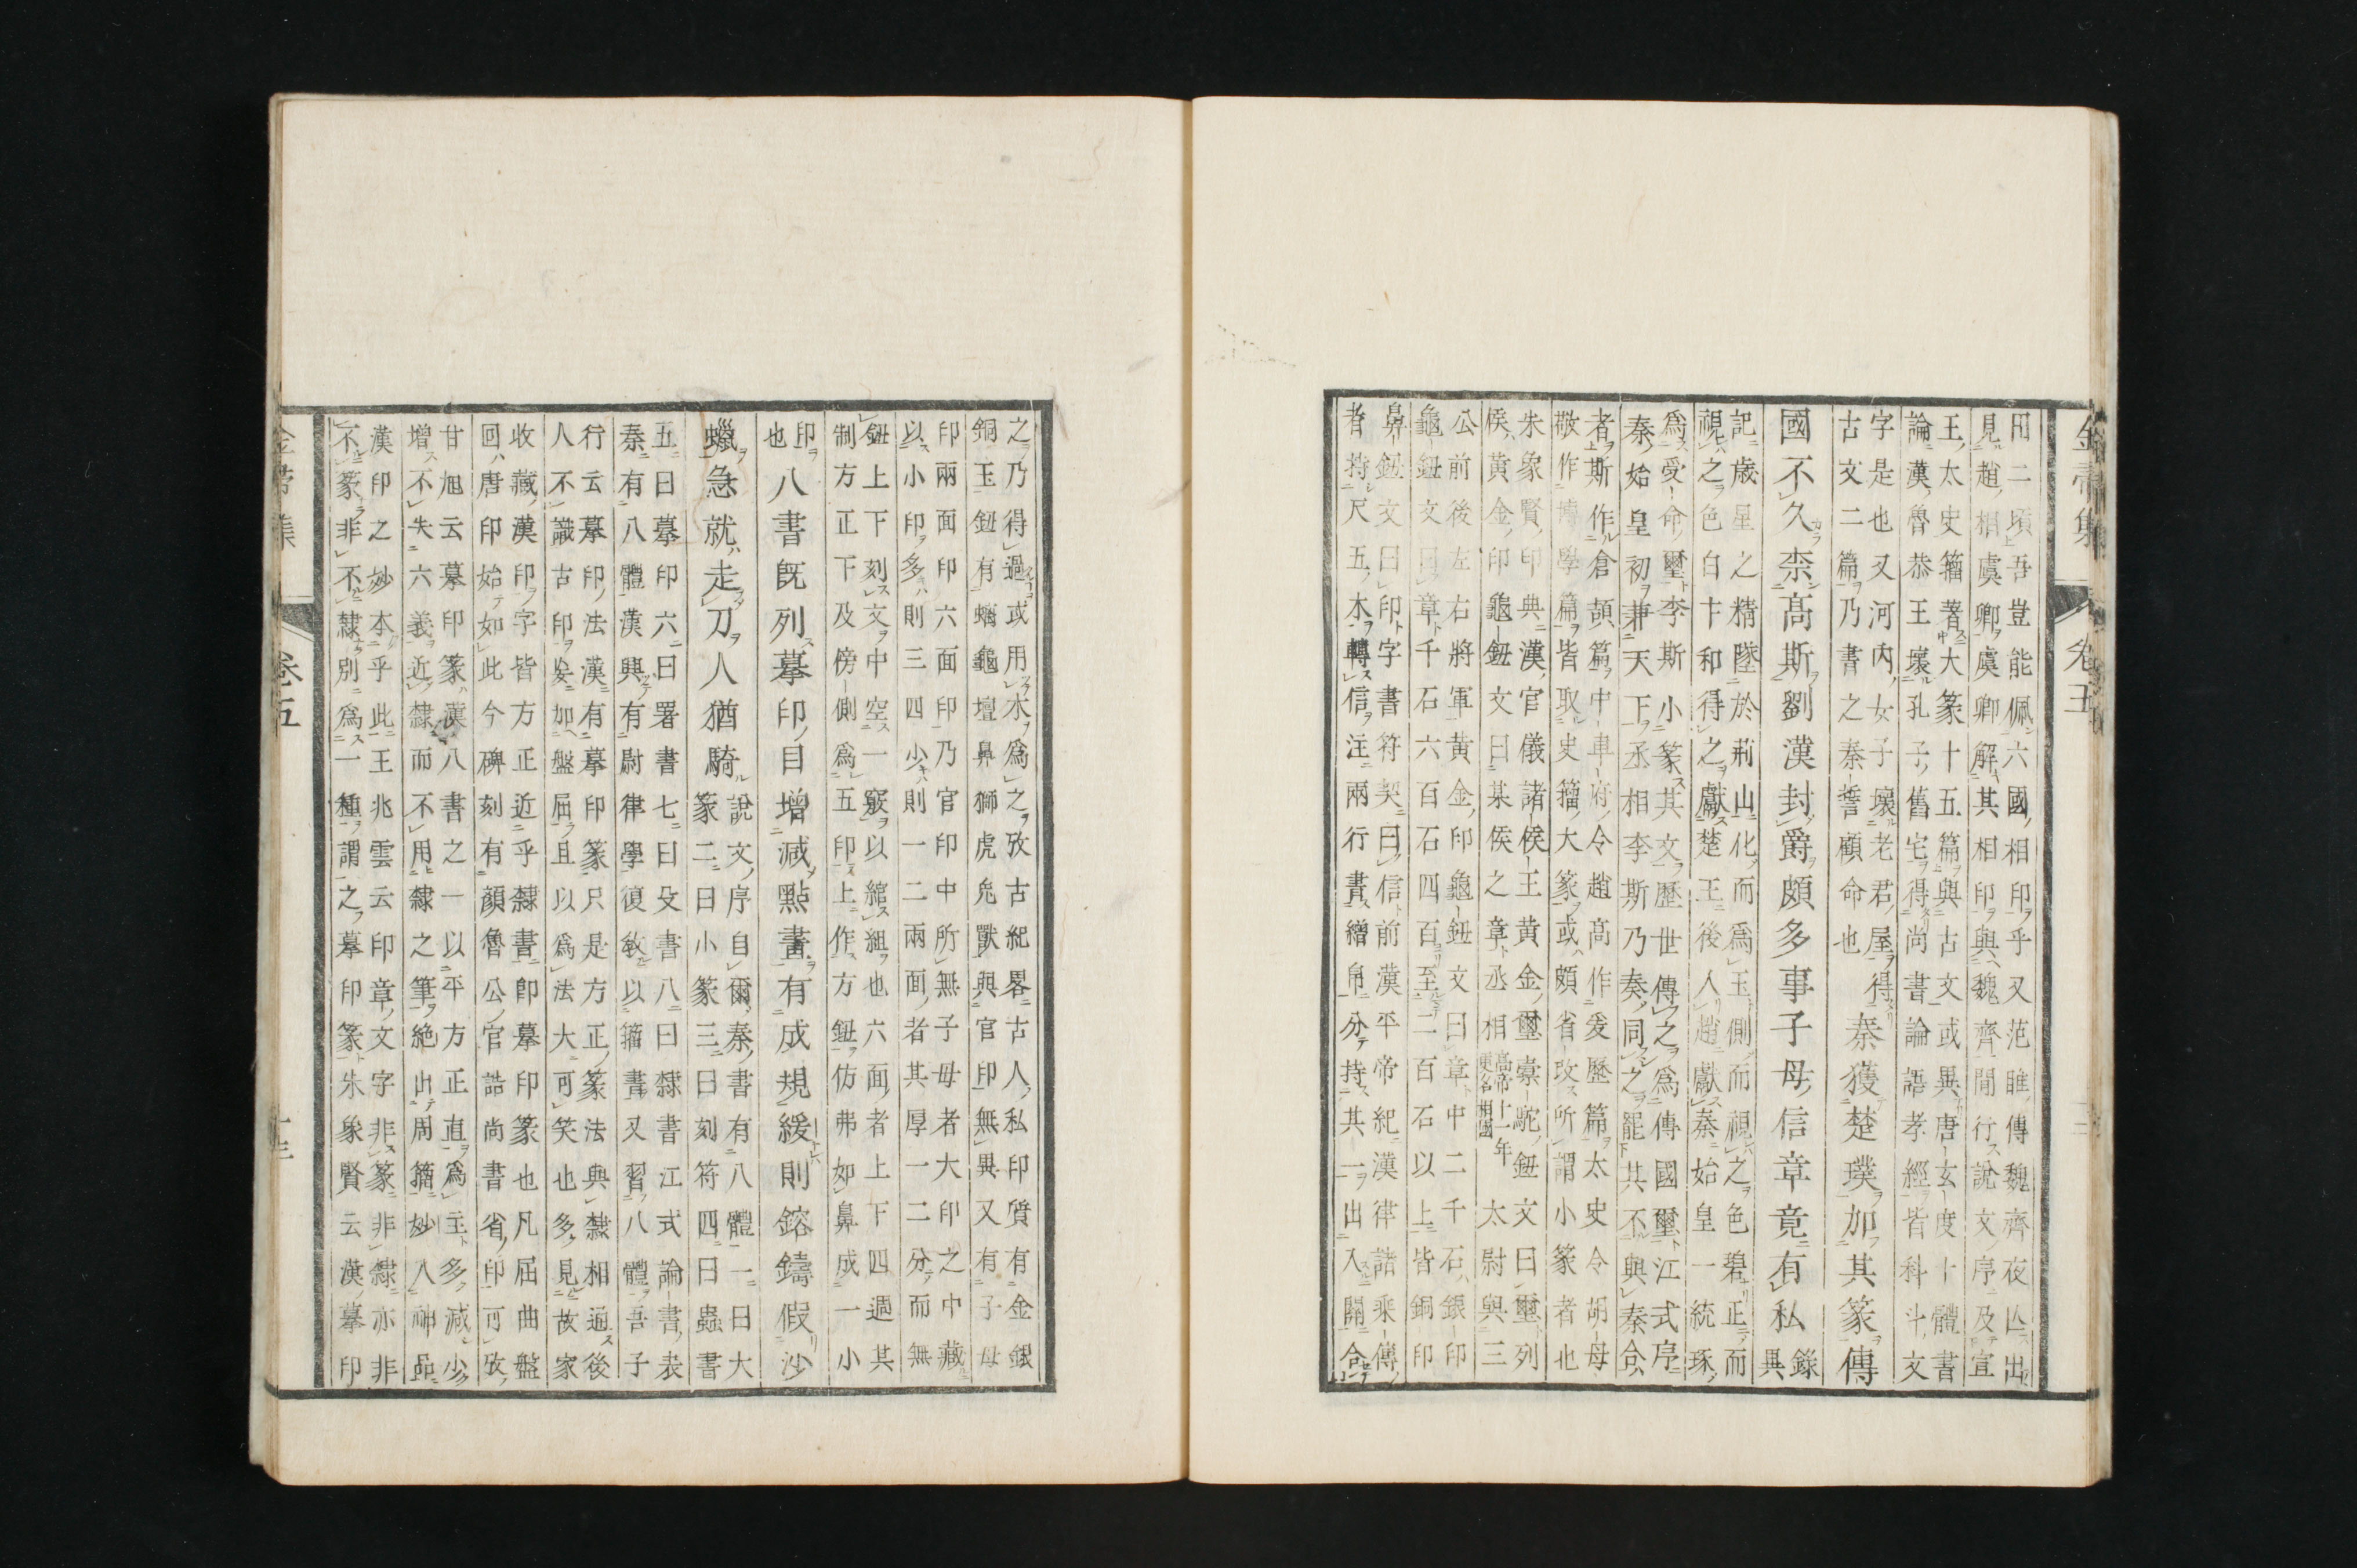 田二頃吾豈能佩六國相印乎又范睢傳魏齊夜亡出
見趙相虞卿虞卿解其相印與魏齊間行說文序及宣
王太史籀著大篆十五篇與古文或異唐玄度十體書
論漢魯恭王壞孔子舊宅得尚書論語孝經皆科斗文
字是也又河內女子壞老君屋得
古文二篇乃書之秦誓顧命也
秦獲楚璞加其篆傳
國不久柰髙斯劉漢封爵頗多事子母信章竟有私
錄
異
記歲星之精墜於荊山化而爲玉側而視之色碧正而
視之色白卞和得之獻楚王後人趙獻秦始皇一統琢
爲受命璽李斯小篆其文歷世傳之爲傳國璽江式序
秦始皇初兼天下丞相李斯乃奏同之罷其不與秦合
者斯作倉頡篇中車府令趙高作爰歷篇太史令胡母
敬作博學篇皆取史籀大篆或頗省改所謂小篆者也
朱象賢印典漢官儀諸侯王黃金璽橐駝鈕文曰璽列
侯黃金印龜鈕文曰某侯之章丞相
高帝十一年
更名相國
太尉與三
公前後左右將軍黃金印龜鈕文曰章中二千石銀印
龜鈕文曰章千石六百石四百至二百石以上皆銅印
鼻鈕文曰印字書符契曰信前漢平帝紀漢律諸乘傳
者持尺五木轉信注兩行書繒帛分持其一出入關合
之乃得過或用木爲之攷古紀畧古人私印質有金銀
銅玉鈕有螭龜壇鼻獅虎兔獸與官印無異又有子母
印兩面印六面印乃官印中所無子母者大印之中藏
以小印多則三四少則一二兩面者其厚一二分而無
鈕上下刻文中空一竅以綰組也六面者上下四週其
制方正下及傍側爲五印上作方鈕仿弗如鼻成一小
印
也
八書旣列摹印目增減點畫有成規緩則鎔鑄假沙
蠟急就走刀人猶騎
說文序自爾秦書有八體一曰大
篆二曰小篆三曰刻符四曰蟲書
五曰摹印六曰署書七曰殳書八曰隸書江式論書表
秦有八體漢興有尉律學復敎以籀書又習八體吾子
行云摹印法漢有摹印篆只是方正篆法與隸相通後
人不識古印妄加盤屈且以爲法大可笑也多見故家
收藏漢印字皆方正近乎隸書卽摹印篆也凡屈曲盤
回唐印始如此今碑刻有顏魯公官誥尚書省印可攷
甘旭云摹印篆漢八書之一以平方正直爲主多減少
增不失六義近隸而不用隸之筆絶出周籀妙入神品
漢印之妙本乎此王兆雲云印章文字非篆非隸亦非
不篆非不隸別爲一種謂之摹印篆朱象賢云漢摹印
卷五